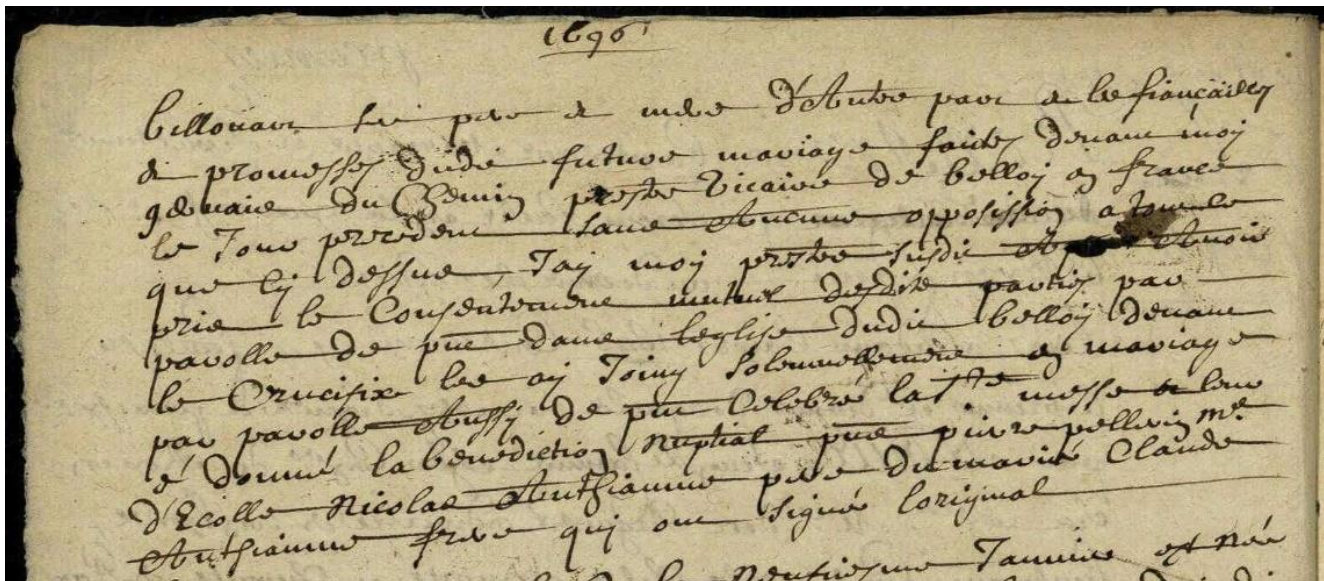 1696
billouart ses pere & mere d'Autre part & les fiançailles
& promesses dudit future mariage faites devant moy
germain du Chemin prestre Vicaire de belloy en france
le Jour precedent sans Aucune opposission a tout ce
que cy dessus, J'ay moy prestre susdit Apres Avoir
pris le Consentement mutuel desdits parties par
parolle de pnt dans l'eglise dudit belloy devant
le Crucifix les ay Joiny solemnellement en mariage
par parolle Aussy de pnt Celebré la Ste messe & leur
é donné la benediction Nuptial pnt pierre pellerin me
d'Ecolle Nicolas Anthiaume pere du marié Claude
Anthiaume frere qui ont signé loriginal
Janvier est Née